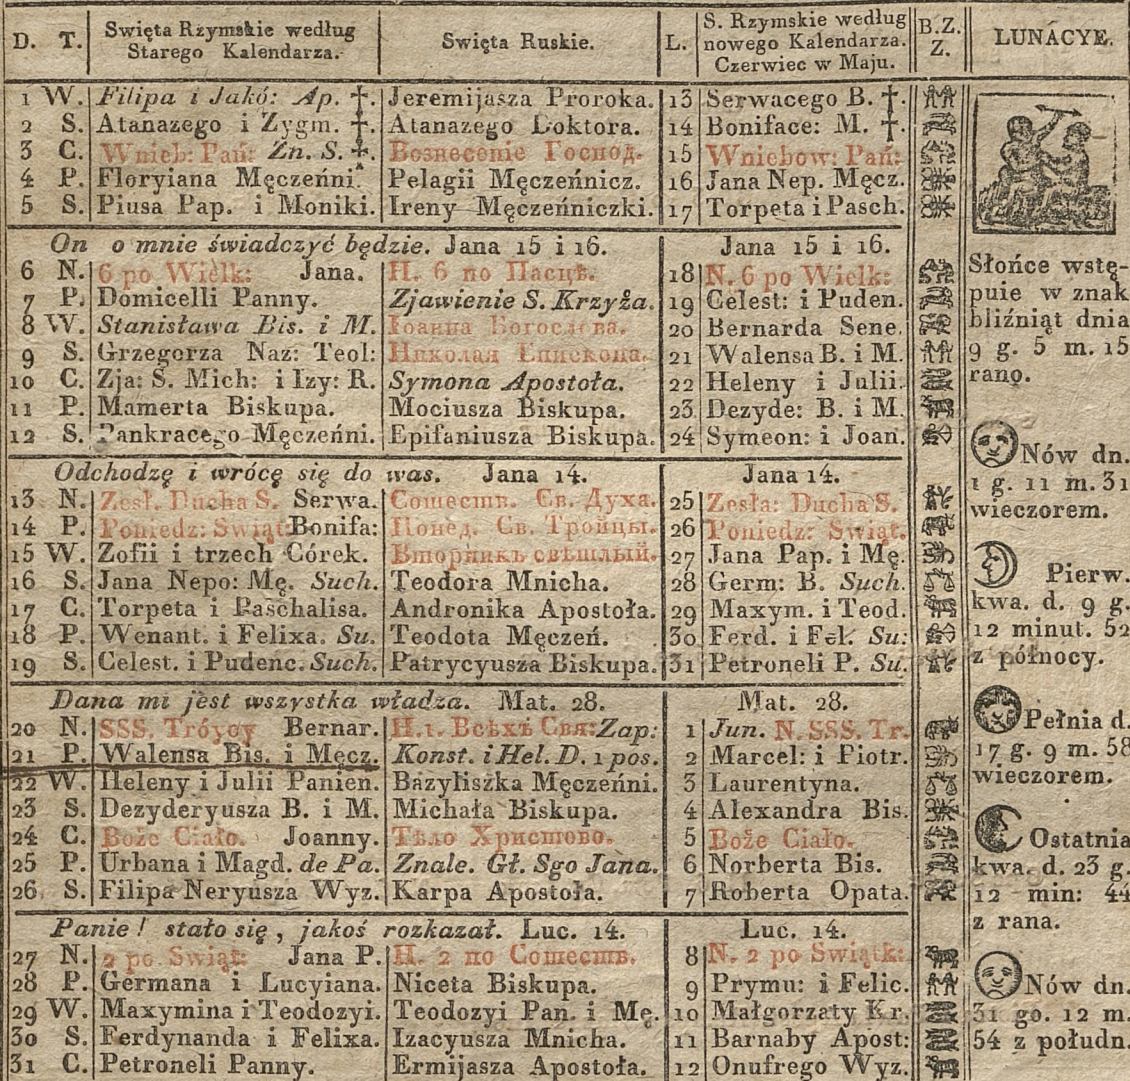 D. T. Swięta Rzymskie według Starego Kalendarza. Swięta Ruskie. L. S. Rzymskie według nowego Kalendarza. Czerwiec w Maju. B.Z. Z. LUNACYE.
1 W. Filipa i Jakó: Ap. †. Jeremijasza Proroka. 13 Serwacego B. †.
2 S. Atanazego i Zygm. †. Atanazego Doktora. 14 Boniface: M. †.
3 C. Wnieb: Pań: Zn. S. †. Вознесеніе Господ. 15 Wniebow: Pań:
4 P. Floryiana Męczeńni. Pelagii Męczeńnicz. 16 Jana Nep. Męcz.
5 S. Piusa Pap. i Moniki. Ireny Męczeńniczki. 17 Torpeta i Pasch.
On o mnie świadczyć będzie. Jana 15 i 16. Jana 15 i 16.
6 N. 6 po Wielk: Jana. Н. 6 по Пасцѣ. 18 N. 6 po Wielk:
7 P. Domicelli Panny. Zjawienie S. Krzyża. 19 Celest: i Puden.
8 W. Stanisława Bis. i M. Іоанна Богослова. 20 Bernarda Sene.
9 S. Grzegorza Naz: Teol: Николая Епископа. 21 Walensa B. i M.
10 C. Zja: S. Mich: i Izy: R. Symona Apostoła. 22 Heleny i Julii.
11 P. Mamerta Biskupa. Mociusza Biskupa. 23 Dezyde: B. i M.
12 S. Pankracego Męczeńni. Epifaniusza Biskupa. 24 Symeon: i Joan.
Odchodzę i wrócę się do was. Jana 14. Jana 14.
13 N. Zesł. Ducha S. Serwa. Сошеств. Св. Духа. 25 Zesła: Ducha S.
14 P. Poniedz: Swiąt: Bonifa: Понед. Св. Тройцы. 26 Poniedz: Swiąt.
15 W. Zofii i trzech Córek. Вторникъ свѣтлый. 27 Jana Pap. i Mę.
16 S. Jana Nepo: Mę. Such. Teodora Mnicha. 28 Germ: B. Such.
17 C. Torpeta i Paschalisa. Andronika Apostoła. 29 Maxym. i Teod.
18 P. Wenant. i Felixa. Su. Teodota Męczeń. 30 Ferd. i Fel. Su:
19 S. Celest. i Pudenc. Such. Patrycyusza Biskupa. 31 Petroneli P. Su.
Dana mi jest wszystka władza. Mat. 28. Mat. 28.
20 N. SSS. Tróycy Bernar. Н. 1. Всѣхѣ Свя: Zap: 1 Jun. N. SSS. Tr.
21 P. Walensa Bis. i Męcz. Konst. i Hel. D. 1 pos. 2 Marcel: i Piotr.
22 W. Heleny i Julii Panien. Bazyliszka Męczeńni. 3 Laurentyna.
23 S. Dezyderyusza B. i M. Michała Biskupa. 4 Alexandra Bis.
24 C. Boże Ciało. Joanny. Тѣло Христово. 5 Boże Ciało.
25 P. Urbana i Magd. de Pa. Znale. Gł. Sgo Jana. 6 Norberta Bis.
26 S. Filipa Neryusza Wyz. Karpa Apostoła. 7 Roberta Opata.
Panie! stało się, jakoś rozkazał. Luc. 14. Luc. 14.
27 N. 2 po Swiąt: Jana P. Н. 2 по Сошеств. 8 N. 2 po Swiątk:
28 P. Germana i Lucyiana. Niceta Biskupa. 9 Prymu: i Felic.
29 W. Maxymina i Teodozyi. Teodozyi Pan. i Mę. 10 Małgorzaty Kr.
30 S. Ferdynanda i Felixa. Izacyusza Mnicha. 11 Barnaby Apost:
31 C. Petroneli Panny. Ermijasza Apostoła. 12 Onufrego Wyz.
Słońce wstę-
puie w znak
bliźniąt dnia
9 g. 5 m. 15
rano.
Nów dn.
1 g. 11 m. 31
wieczorem.
Pierw.
kwa. d. 9 g.
12 minut. 52
z północy.
Pełnia d.
17 g. 9 m. 58
wieczorem.
Ostatnia
kwa. d. 23 g.
12 min: 44
z rana.
Nów dn.
31 go. 12 m.
54 z połudn.